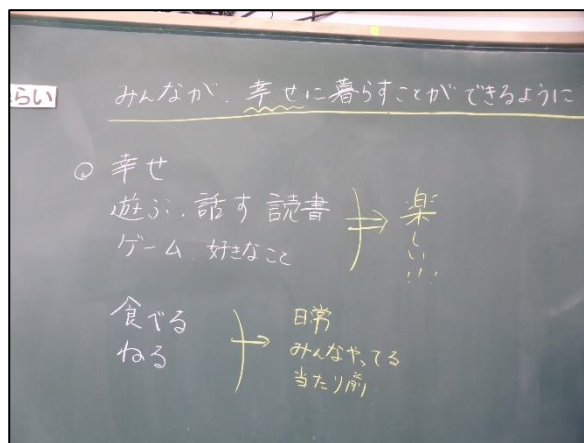 らい
みんなが、幸せに暮らすことができるように
幸せ
遊ぶ、話す 読書
ゲーム、好きなこと
楽しい!!!
食べる
ねる
日常
みんなやってる
当たり前